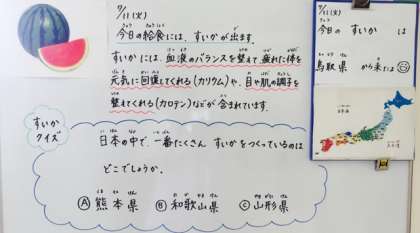 9/11(火)
今日の給食には、すいかが出ます。
すいかには、血液のバランスを整えて疲れた体を
元気に回復してくれる(カリウム)や、目や肌の調子を
整えてくれる(カロテン)などが含まれています。
すいか
クイズ
日本の中で、一番たくさん すいかをつくっているのは
どこでしょうか。
Ⓐ熊本県 Ⓑ和歌山県 Ⓒ山形県
9/11(火)
今日の すいか は
鳥取県 から来たよ